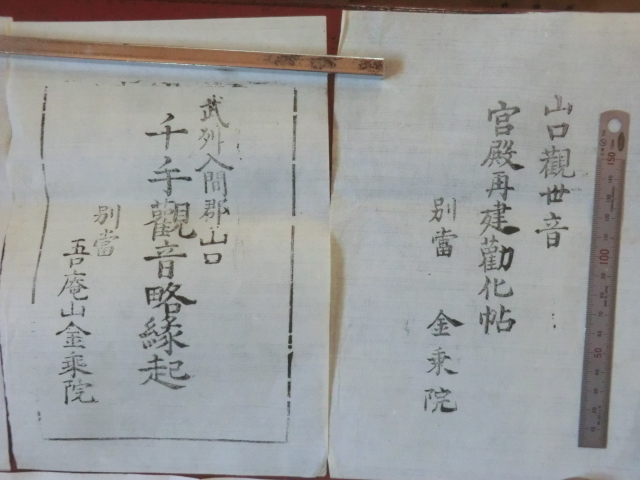 山口觀世音
宮殿再建勸化帖
別當 金乘院
武列入間郡山口
千手觀音略緣起
別當
吾庵山金乘院